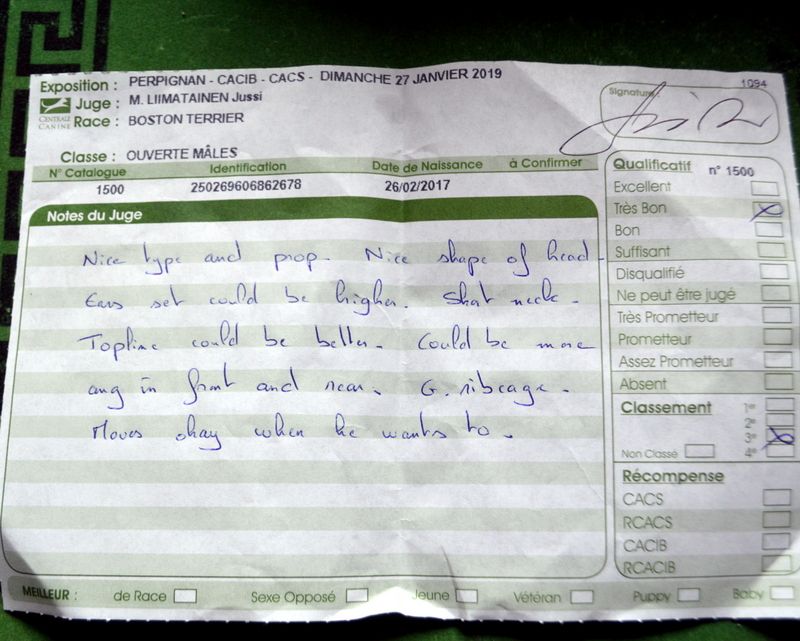 Exposition : PERPIGNAN - CACIB - CACS - DIMANCHE 27 JANVIER 2019
1094
Juge : M. LIIMATAINEN Jussi
Signature :
CENTRALE CANINE
Race : BOSTON TERRIER
Classe : OUVERTE MÂLES
N° Catalogue Identification Date de Naissance à Confirmer
1500 250269606862678 26/02/2017
Notes du Juge
Nice type and prop. Nice shape of head.
Ears set could be higher. Short neck.
Topline could be better. Could be more
ang in front and rear. G. ribcage.
Moves okay when he wants to.
Qualificatif n° 1500
Excellent
Très Bon
Bon
Suffisant
Disqualifié
Ne peut être jugé
Très Prometteur
Prometteur
Assez Prometteur
Absent
Classement 1er
2e
3e
Non Classé 4e
Récompense
CACS
RCACS
CACIB
RCACIB
MEILLEUR : de Race Sexe Opposé Jeune Vétéran Puppy Baby